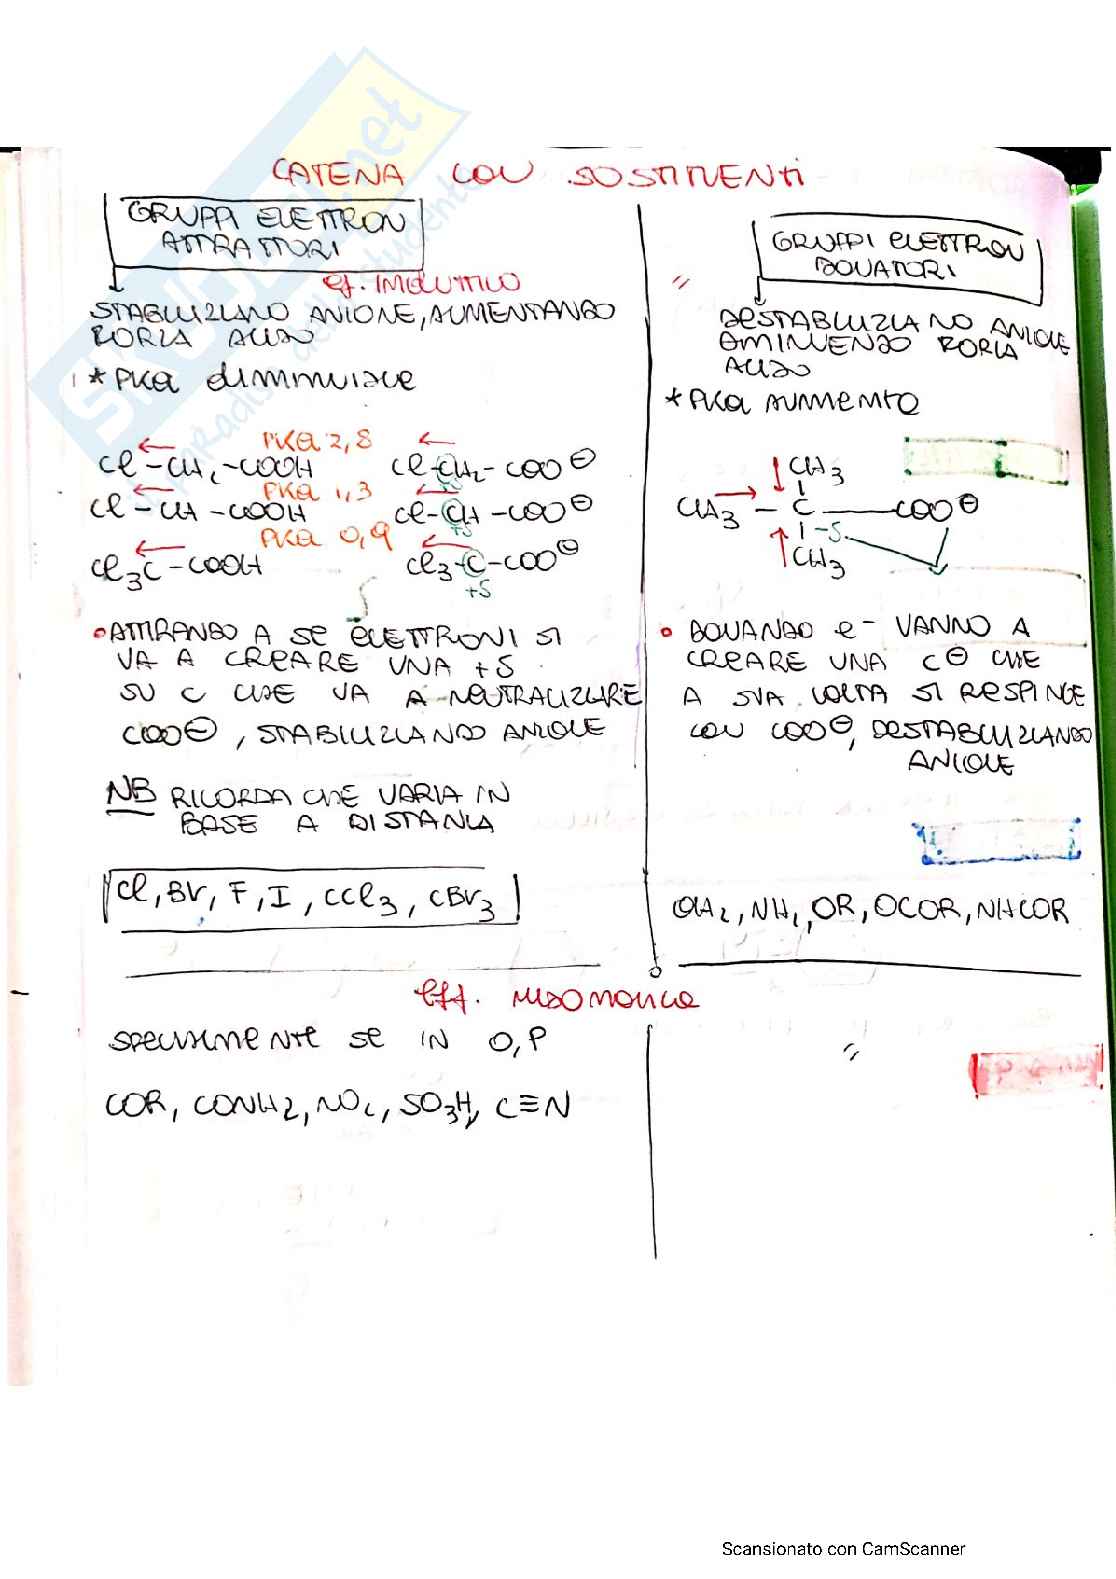 CATENA CON SOSTITUENTI
GRUPPI ELETTRON
ATTRATTORI
ef. INDUTTIVO
STABILIZZANO ANIONE, AUMENTANDO
FORZA ACIDO
* PKa diminuisce
PKa 2,8
Cl-CH2-COOH
Cl-CH2-COO⊖
+S
PKa 1,3
Cl-CH-COOH
Cl-CH-COO⊖
+S
PKa 0,9
Cl3C-COOH
Cl3-C-COO⊖
+S
• ATTIRANDO A SE ELETTRONI SI
VA A CREARE UNA +S
SU C CHE VA A NEUTRALIZZARE
COO⊖, STABILIZZANDO ANIONE
NB RICORDA CHE VARIA IN
BASE A DISTANZA
Cl, Br, F, I, CCl3, CBr3
GRUPPI ELETTRON
DONATORI
"
DESTABILIZZANO ANIONE
DIMINUENDO FORZA
ACIDO
* PKa AUMENTA
CH3
CH3 - C - COO⊖
-S
CH3
• DONANDO e- VANNO A
CREARE UNA C⊖ CHE
A SUA VOLTA SI RESPINGE
CON COO⊖, DESTABILIZZANDO
ANIONE
CH2, NH2, OR, OCOR, NHCOR
Eff. RISONANZA
SPECIALMENTE SE IN O, P
COR, CONH2, NO2, SO3H, C≡N
"
SKUOLA.net
Il paradiso dello studente
Scansionato con CamScanner